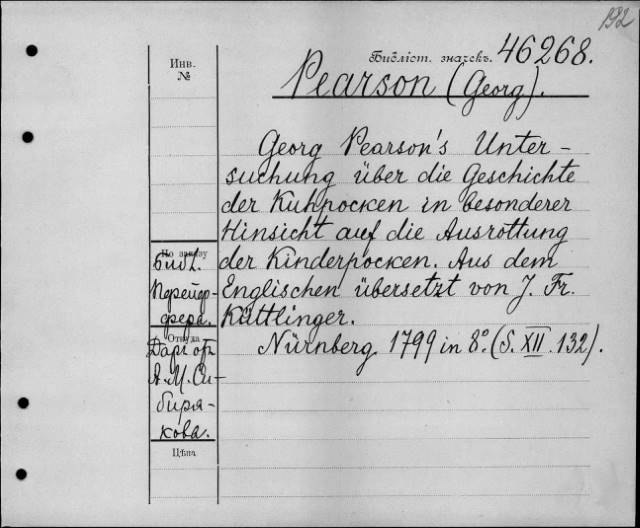 192
Библіот. значекъ. 46268.
Инв.
№
Pearson (Georg).
Georg Pearson's Unter-
suchung über die Geschichte
der Kuhpocken in besonderer
Hinsicht auf die Ausrottung
der Kinderpocken. Aus dem
Englischen übersetzt von J. Fr.
Küttlinger.
Nürnberg 1799 in 8º. (S. XII. 132).
По заказу
Библ.
Перейд-
фера.
Откуда
Даръ отъ
А. М. Си-
биря-
кова.
Цѣна